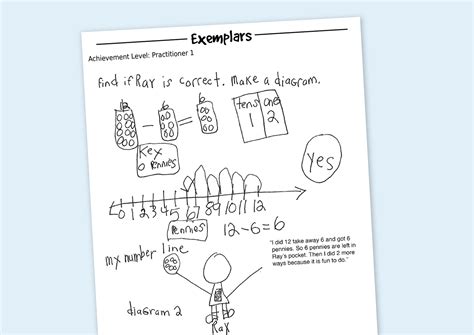 Exemplars
Achievement Level: Practitioner 1
Find if Ray is correct. Make a diagram.
12 6 6
- =
tens ones
1 2
Key
O Pennies
Yes
0 1 2 3 4 5 6 7 8 9 10 11 12
Pennies
12-6=6
my number line
"I did 12 take away 6 and got 6
pennies. So 6 pennies are left in
Ray's pocket. Then I did 2 more
ways because it is fun to do."
diagram 2
Ray